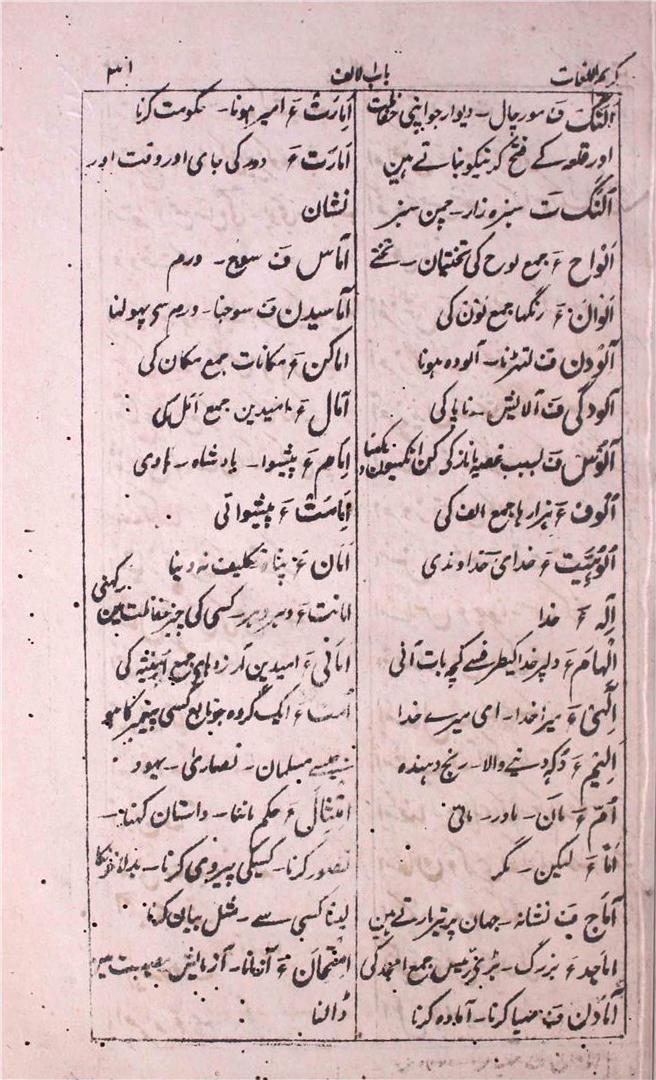 کریم اللغات
باب الالف
۳۱
اَلَنگ ف مورچال۔ دیوار جو اپنی حفاظت
اور قلعہ کے فتح کرنیکو بناتے ہین
اُلَنگ ت سبزہ زار۔ چمن سبز
اَلواح ء جمع لوح کی تختیان۔ تختے
اَلوان ء رنگہا جمع لون کی
آلودن ف لتھڑنا۔ آلودہ ہونا
آلودگی ف آلایش۔ ناپاکی
ف بسبب غصہ یا ناز کے
اُلوف ء ہزارہا جمع الف کی
اُلوہیّت ء خدائی خداوندی
اِلٰہ ء خدا
اِلہام ء دلپر خدا کیطرف سے کچھ بات آنی
اِلٰہی ء میرا خدا۔ ای میرے خدا
اَلیم ء دکھ دینے والا۔ رنج دہندہ
اُمّ ء مان۔ مادر۔ مائی
اَمّا ء لیکن۔ مگر
آماج ف نشانہ۔ جہان پر تیر مارتے ہین
اماجد ء بزرگ۔ بڑے جمع امجد کی
آمادن ف مہیا کرنا۔ آمادہ کرنا
اِمارت ء امیر ہونا۔ حکومت کرنا
اَمارت ء دور کی جای اور وقت اور
نشان
آماس ف سوج۔ ورم
آماسیدن ف سوجنا۔ ورم سے پھولنا
اماکن ء مکانات جمع مکان کی
آمال ء امیدین جمع امل کی
اِمام ء پیشوا۔ بادشاہ۔ ہادی
اِمامت ء پیشوائی
اَمان ء پناہ تکلیف نہ دینا
امانت ء کسی کی چیز حفاظت مین رکھنی
امانی ء امیدین آرزوہای جمع امنیۃ کی
اُمت ء ایک گروہ جو تابع کسی پیغمبر کا ہو
جیسے مسلمان۔ نصاریٰ۔ یہود
اِمتثال ء حکم ماننا۔ داستان کہنا۔
تصور کرنا۔ کسیکی پیروی کرنا۔ بدلا خون کا
لینا کسی سے۔ مثل بیان کرنا
اِمتحان ء آزمانا۔ آزمایش مصیبت مین
ڈالنا